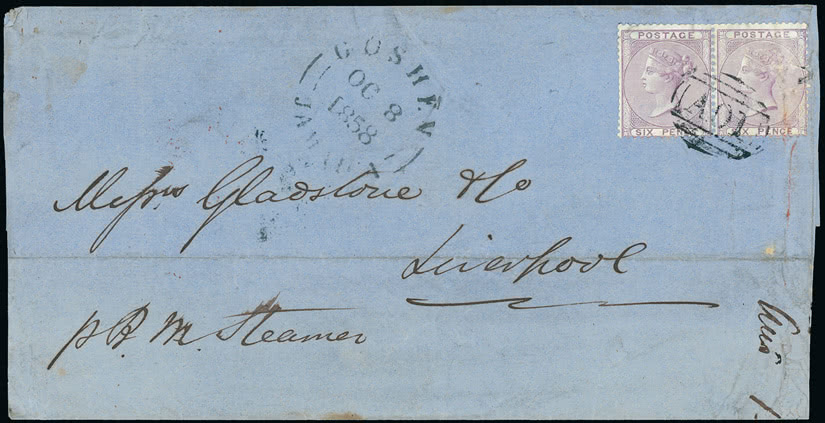 POSTAGE POSTAGE
SIX PENCE SIX PENCE
A01
GOSHEN
OC 8
1858
JAMAICA
Messrs Gladstone & Co
Liverpool
p R M Steamer